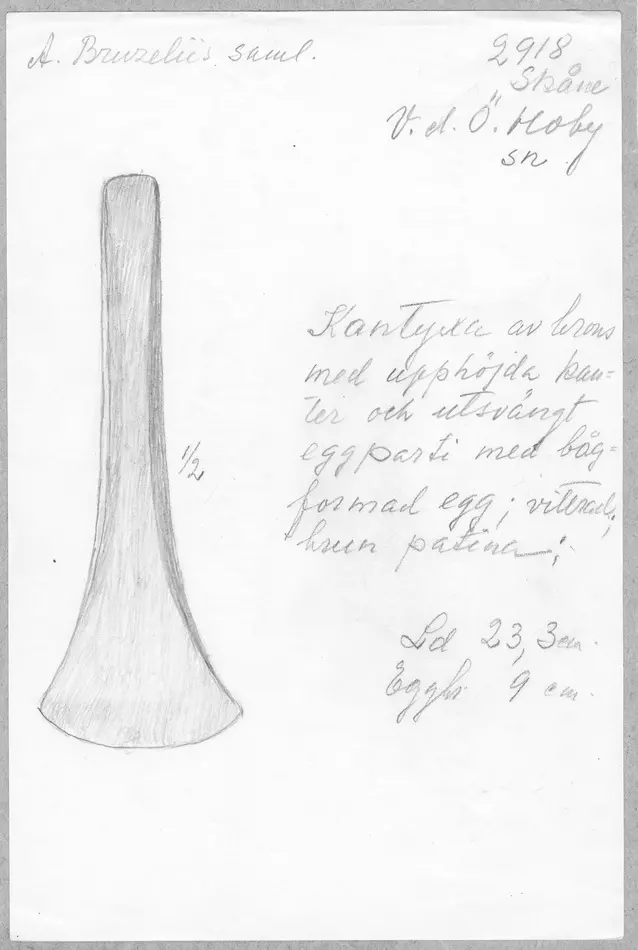 A. Bruzelius saml.
2918
Skåne
V. d. Ö. Hoby
sn
Kantyxa av brons
med upphöjda kan=
ter och utsvängt
eggparti med båg=
formad egg; vittrad,
brun patina;
1/2
Ld 23,3 cm.
Eggbr 9 cm.